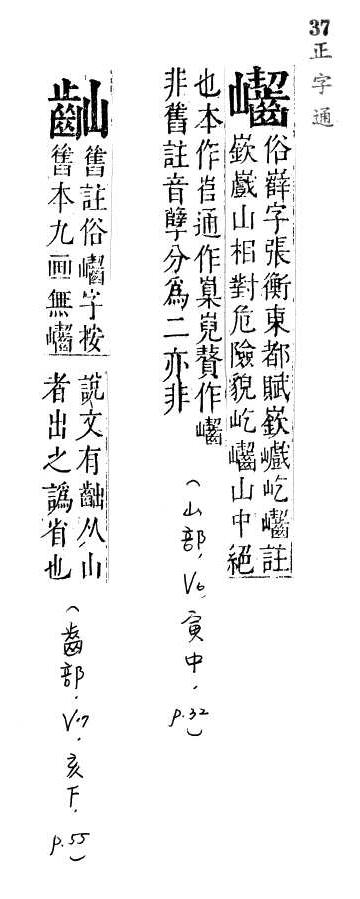 37 正字通
俗嶭字張衡東都賦嶔巇屹註
嶔巇山相對危險貌屹山中絕
也本作通作贅作
非舊註音孽分爲二亦非
(山部, V6, 寅中, p.32)
舊註俗字按
舊本九画無
說文有从山
者出之譌省也
(齒部, V.7, 亥下, p.55)